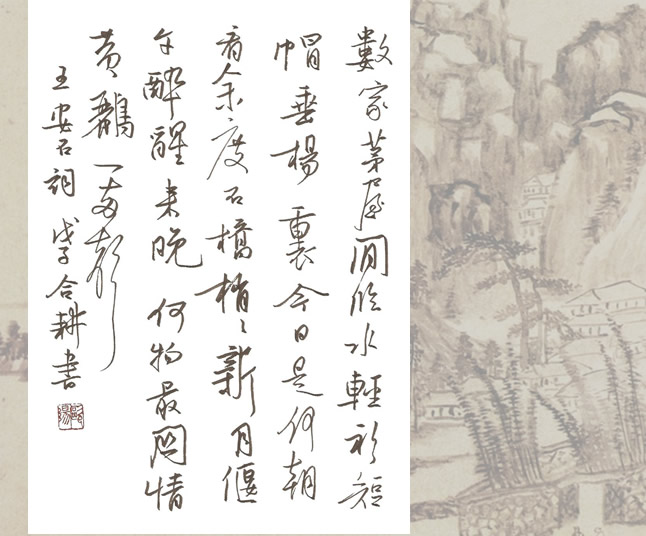 數家茅屋閒臨水輕衫短
帽垂楊裏今日是何朝
看余度石橋梢〻新月偃
午醉醒來晚何物最關情
黃鸝一兩聲
王安石詞 戊子合耕書